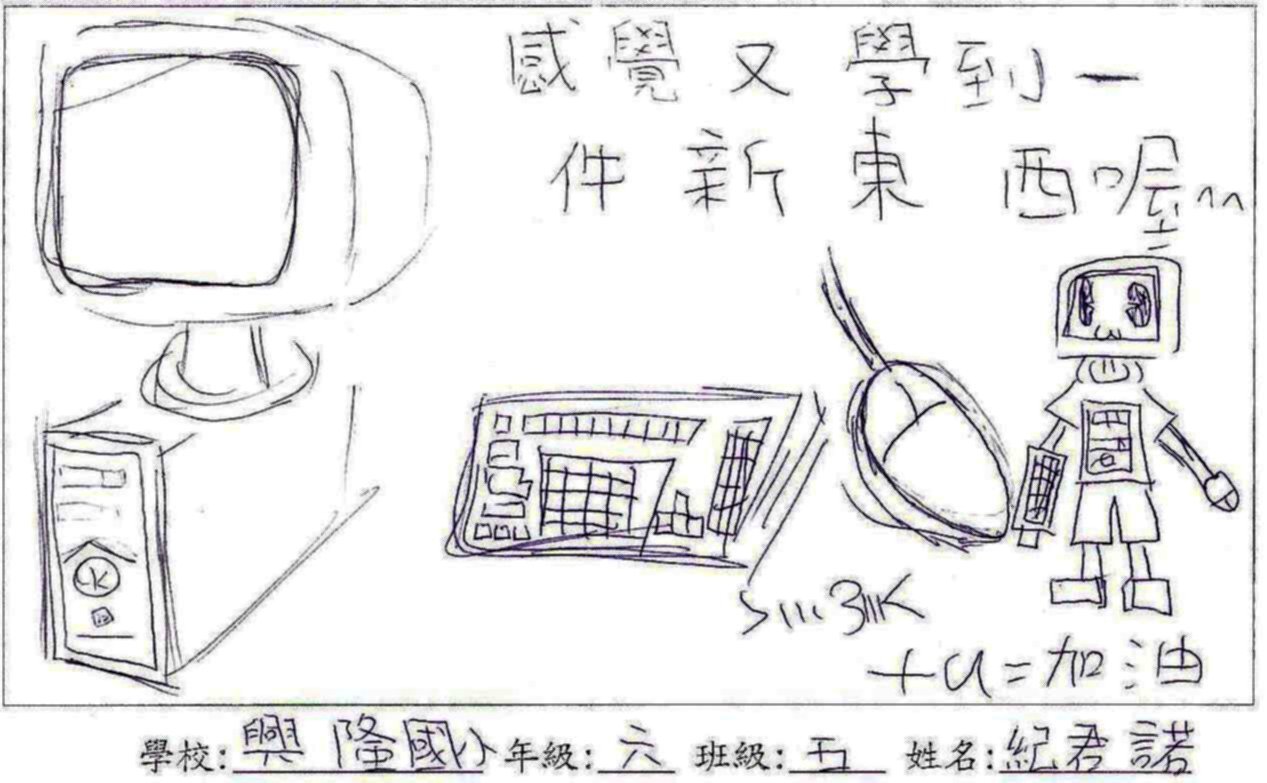 感覺又學到一
件新東西喔^^
K
S///3///K
+u=加油
學校:興隆國小 年級:六 班級:五 姓名:紀君諾